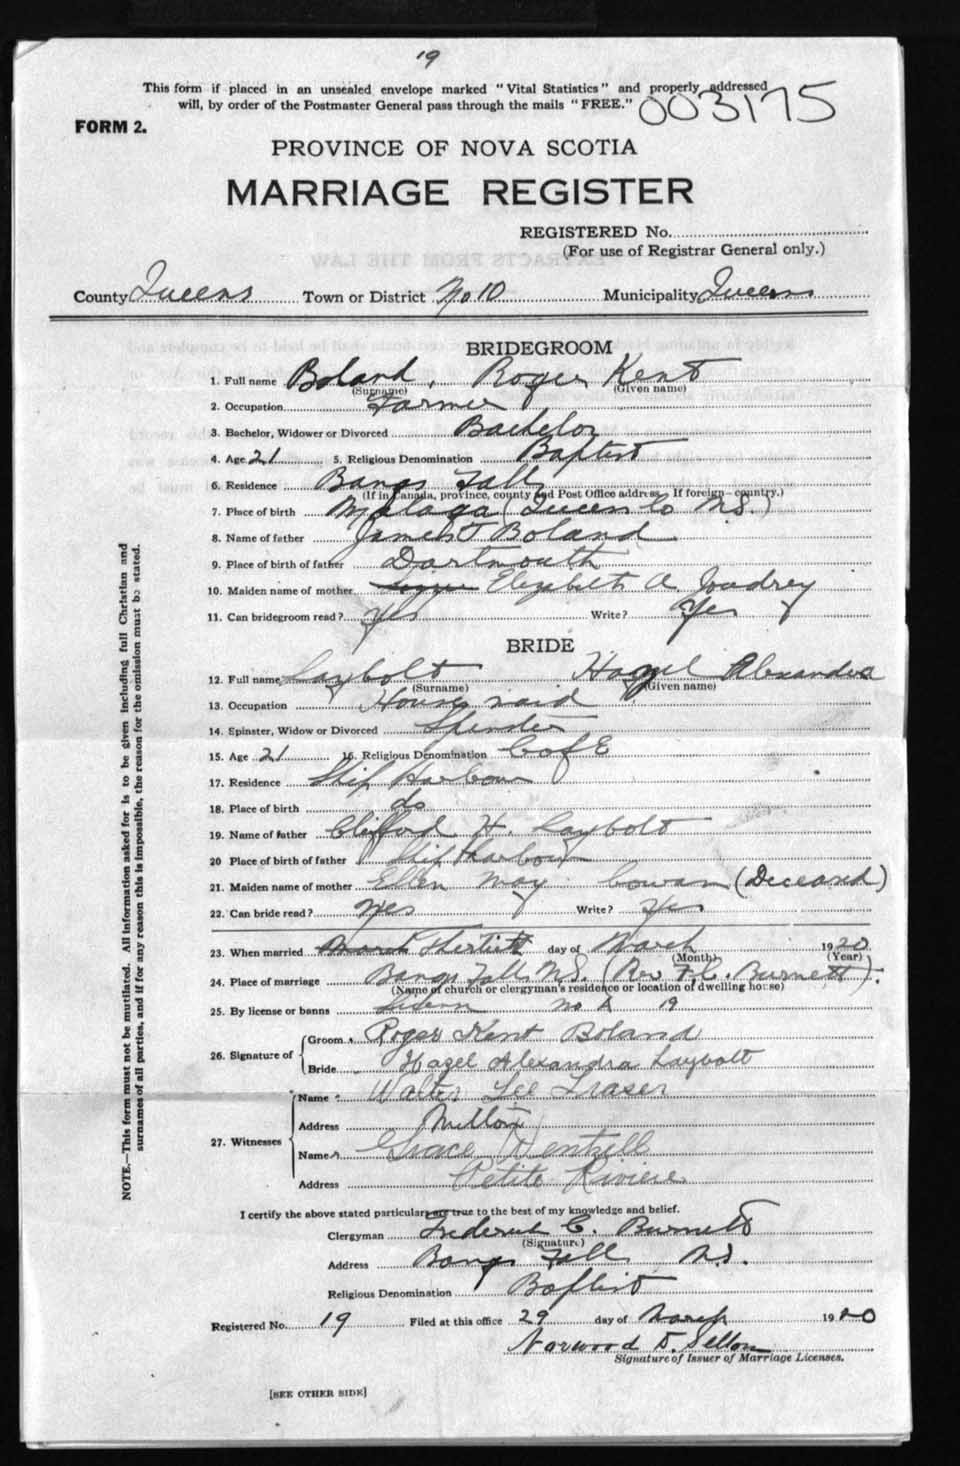 19
This form if placed in an unsealed envelope marked "Vital Statistics" and properly addressed
will, by order of the Postmaster General pass through the mails "FREE."
003175
FORM 2.
PROVINCE OF NOVA SCOTIA
MARRIAGE REGISTER
REGISTERED No.
(For use of Registrar General only.)
County Queens Town or District No 10 Municipality Queens
BRIDEGROOM
1. Full name Boland, Roger Kent
(Surname) (Given name)
2. Occupation Farmer
3. Bachelor, Widower or Divorced Bachelor
4. Age 21 5. Religious Denomination Baptist
6. Residence Bangs Falls
(If in Canada, province, county and Post Office address. If foreign—country.)
7. Place of birth Malaga (Queens Co N.S.)
8. Name of father James T Boland
9. Place of birth of father Dartmouth
10. Maiden name of mother Elizabeth A. Joudrey
11. Can bridegroom read? Yes Write? Yes
BRIDE
12. Full name Laybolt Hazel Alexandra
(Surname) (Given name)
13. Occupation House maid
14. Spinster, Widow or Divorced Spinster
15. Age 21 16. Religious Denomination C of E
17. Residence Ship Harbour
18. Place of birth do
19. Name of father Clifford H. Laybolt
20 Place of birth of father Ship Harbour
21. Maiden name of mother Ellen May Cowan (Deceased)
22. Can bride read? Yes Write? Yes
23. When married March day of March 1920
(Month) (Year)
24. Place of marriage Bangs Falls N.S. (Rev. F. C. Burnett).
(Name of church or clergyman's residence or location of dwelling house)
25. By license or banns No 19
26. Signature of Groom Roger Kent Boland
Bride Hazel Alexandra Laybolt
27. Witnesses Name Walter Lee Fraser
Address Milton
Name Grace
Address Petite Riviere
I certify the above stated particulars are true to the best of my knowledge and belief.
Clergyman Frederick C. Burnett
(Signature)
Address Bangs Falls N.S.
Religious Denomination Baptist
Registered No. 19 Filed at this office 29 day of March 1920
Norwood D. Sellon
Signature of Issuer of Marriage Licenses.
[SEE OTHER SIDE]
NOTE.—This form must not be mutilated. All information asked for is to be given including full Christian and
surnames of all parties, and if for any reason this is impossible, the reason for the omission must be stated.